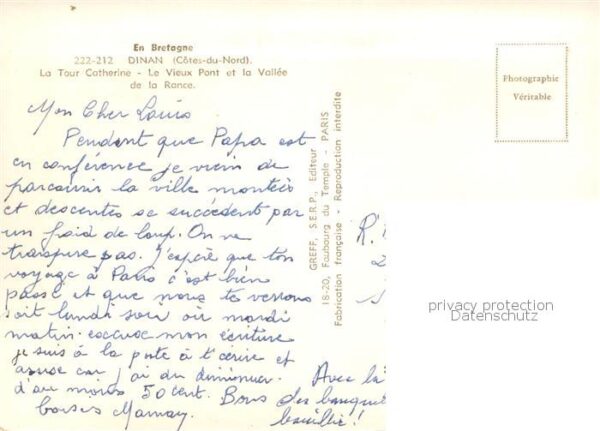 En Bretagne
222-212 DINAN (Côtes-du-Nord).
La Tour Catherine - Le Vieux Pont et la Vallée
de la Rance.
Photographie
Véritable
GREFF, S.E.R.P., Editeur
18-20, Faubourg du Temple - PARIS
Fabrication française - Reproduction interdite
Mon Cher Louis
Pendant que Papa est
en conférence je viens de
parcourir la ville montées
et descentes se succèdent par
un froid de loup. On ne
transpire pas. J'espère que ton
voyage à Paris c'est bien
passé et que nous te verrons
soit lundi soir où mardi
matin. excuse mon écriture
je suis à la poste à t'écrire et
car j'ai du diminuer
d'au moins 50 cent. Bons
baisers Maman.
Avec
des
R.
privacy protection
Datenschutz